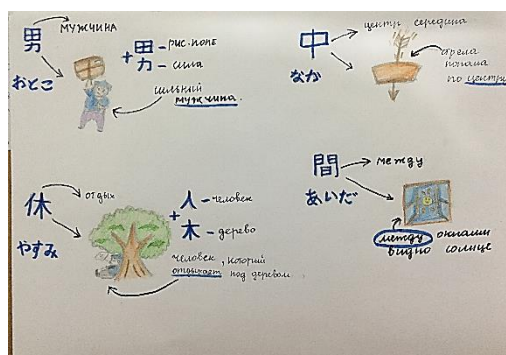 男 мужчина
おとこ
+ 男 – рис. поле
力 – сила
сильный
мужчина.
中 центр середина
なか
стрела
попала
по центру
休 отдых
やすみ
+ 人 – человек
木 – дерево
человек, который
отдыхает под деревом
間 между
あいだ
между окнами
видно солнце